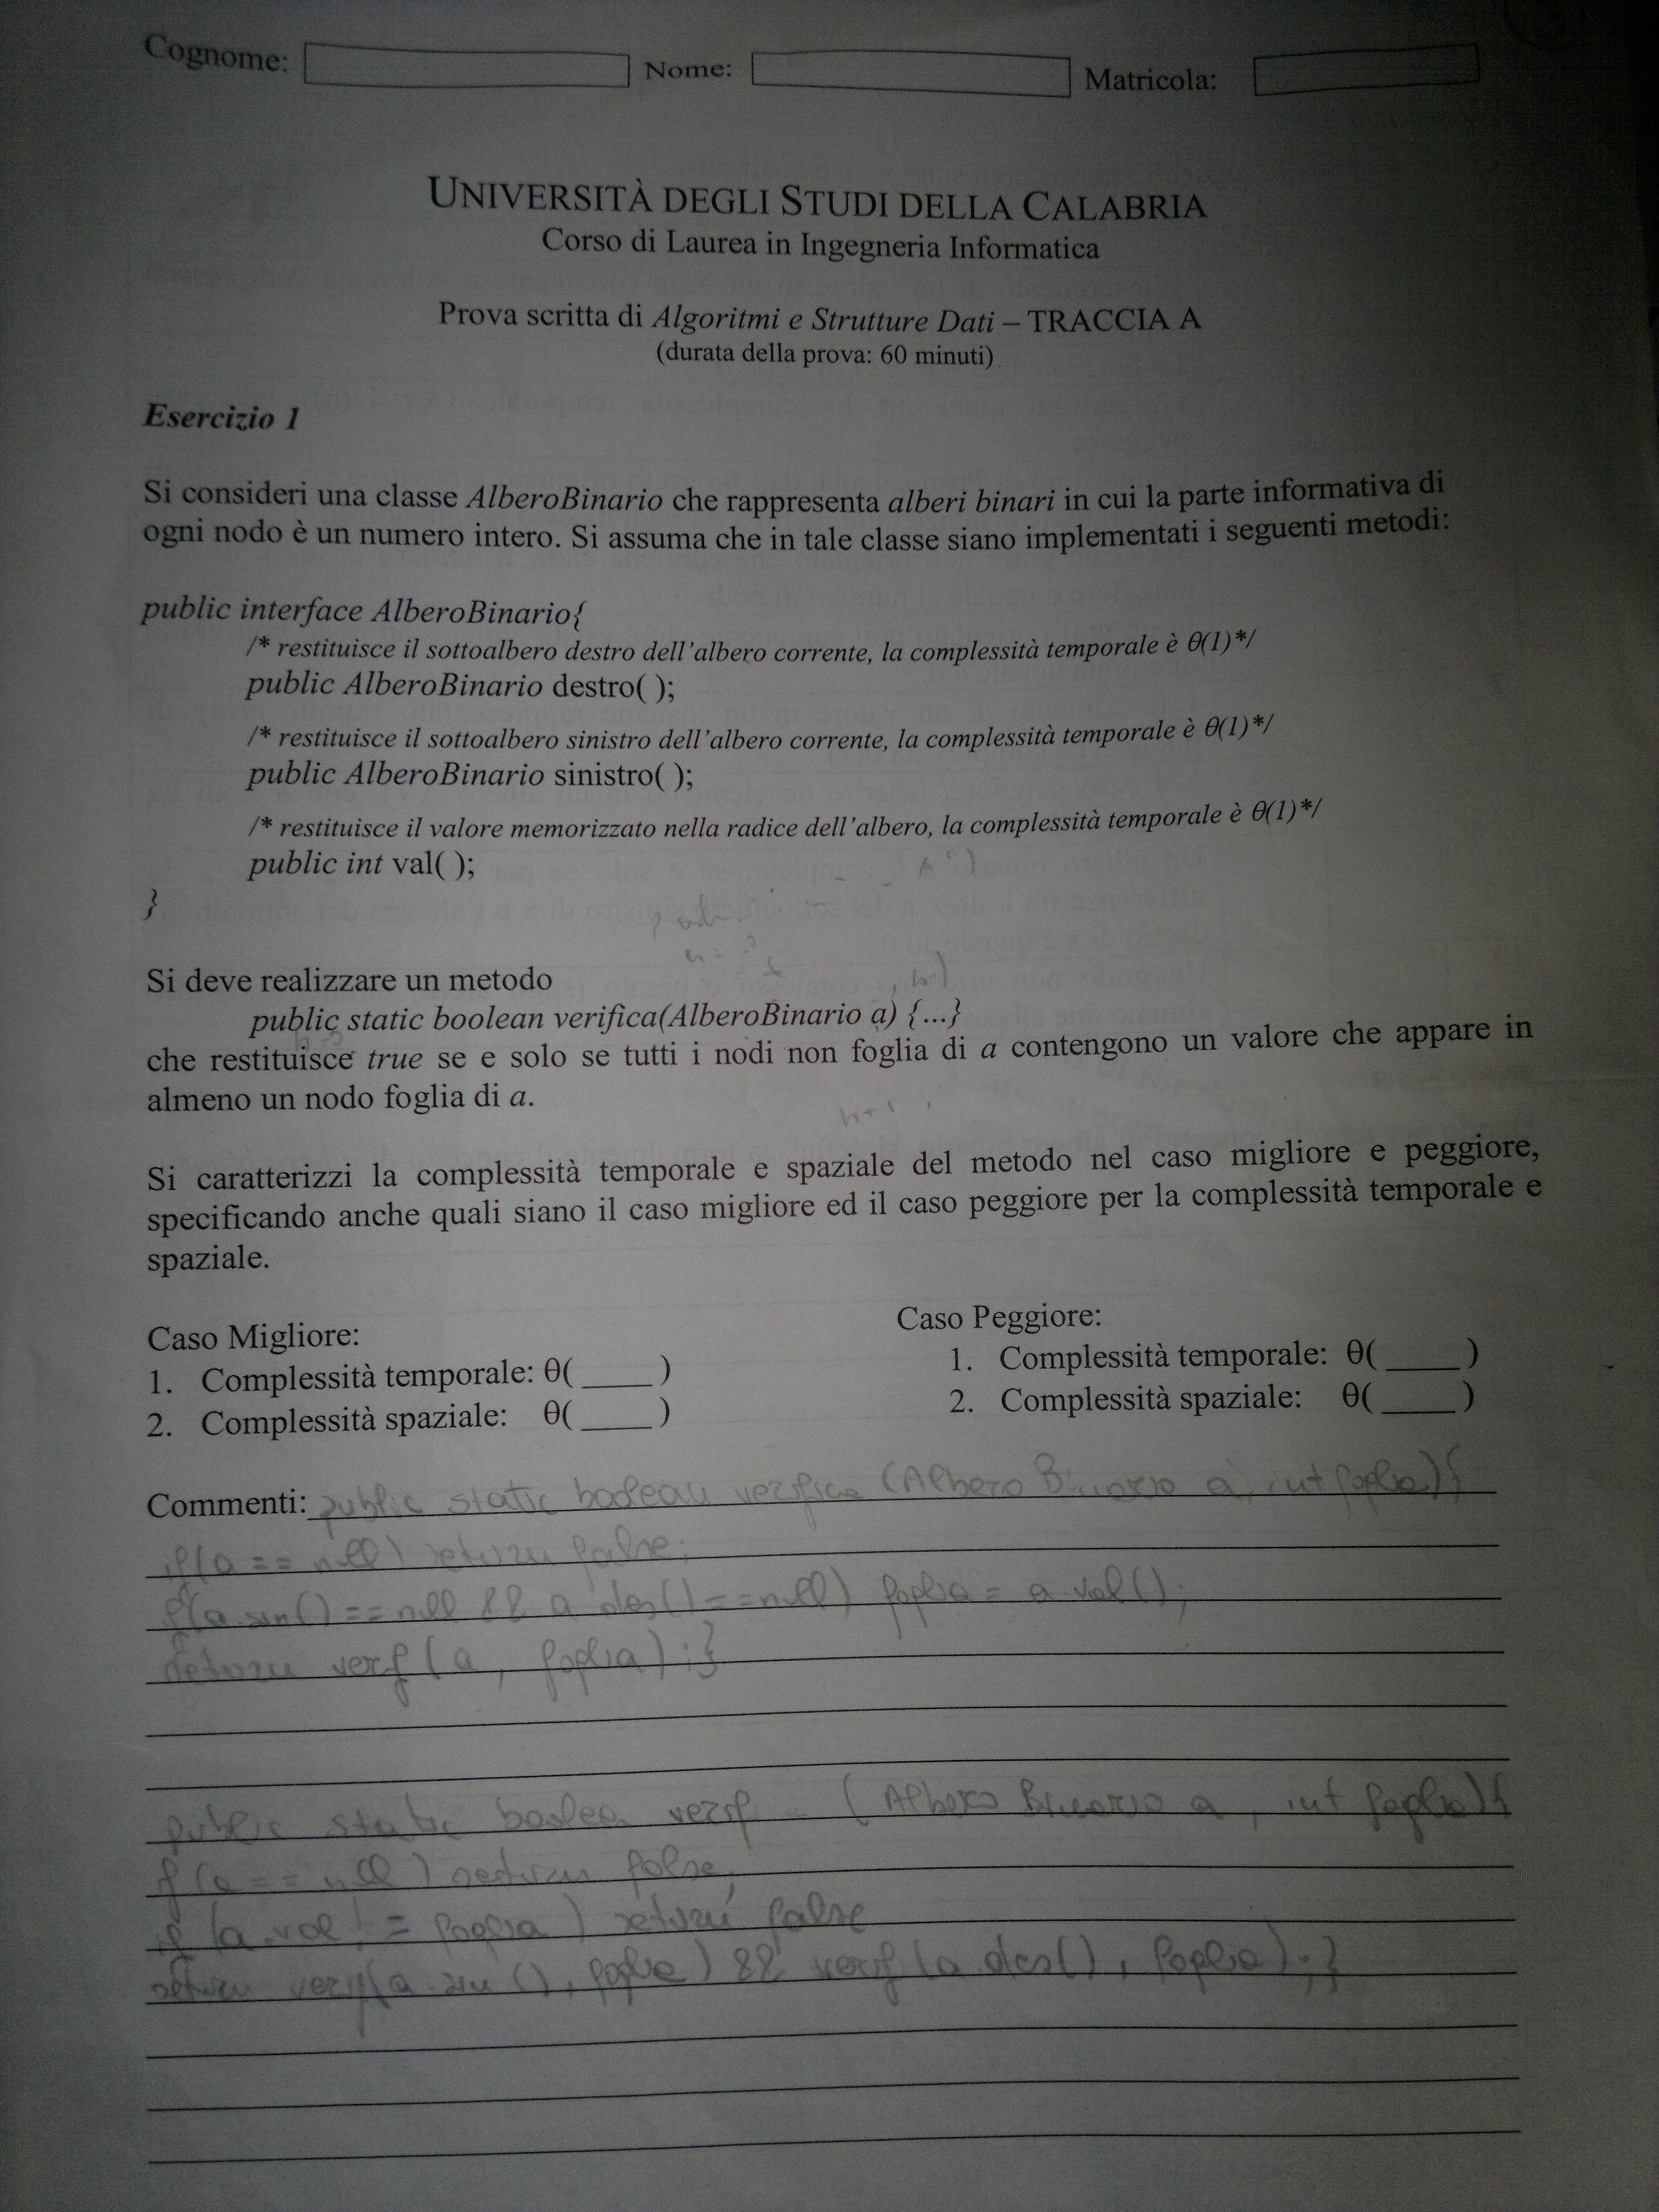 Cognome: Nome: Matricola:
UNIVERSITÀ DEGLI STUDI DELLA CALABRIA
Corso di Laurea in Ingegneria Informatica
Prova scritta di Algoritmi e Strutture Dati – TRACCIA A
(durata della prova: 60 minuti)
Esercizio 1
Si consideri una classe AlberoBinario che rappresenta alberi binari in cui la parte informativa di
ogni nodo è un numero intero. Si assuma che in tale classe siano implementati i seguenti metodi:
public interface AlberoBinario{
/* restituisce il sottoalbero destro dell'albero corrente, la complessità temporale è θ(1)*/
public AlberoBinario destro( );
/* restituisce il sottoalbero sinistro dell'albero corrente, la complessità temporale è θ(1)*/
public AlberoBinario sinistro( );
/* restituisce il valore memorizzato nella radice dell'albero, la complessità temporale è θ(1)*/
public int val( );
}
Si deve realizzare un metodo
public static boolean verifica(AlberoBinario a) {...}
che restituisce true se e solo se tutti i nodi non foglia di a contengono un valore che appare in
almeno un nodo foglia di a.
n+1
Si caratterizzi la complessità temporale e spaziale del metodo nel caso migliore e peggiore,
specificando anche quali siano il caso migliore ed il caso peggiore per la complessità temporale e
spaziale.
Caso Migliore:
1. Complessità temporale: θ( _____ )
2. Complessità spaziale: θ( _____ )
Caso Peggiore:
1. Complessità temporale: θ( _____ )
2. Complessità spaziale: θ( _____ )
Commenti: public static boolean verifica (Albero Binario a, int foglia){
if(a == null) return false;
if(a.sin() == null && a des() == null) foglia = a.val();
return verf (a, foglia);}
public static boolea verf = (Albero Binario a, int foglia){
if (a == null) return false;
if (a.val != foglia) return false
return verf(a.sin(), foglia) && verf(a.des(), foglia);}